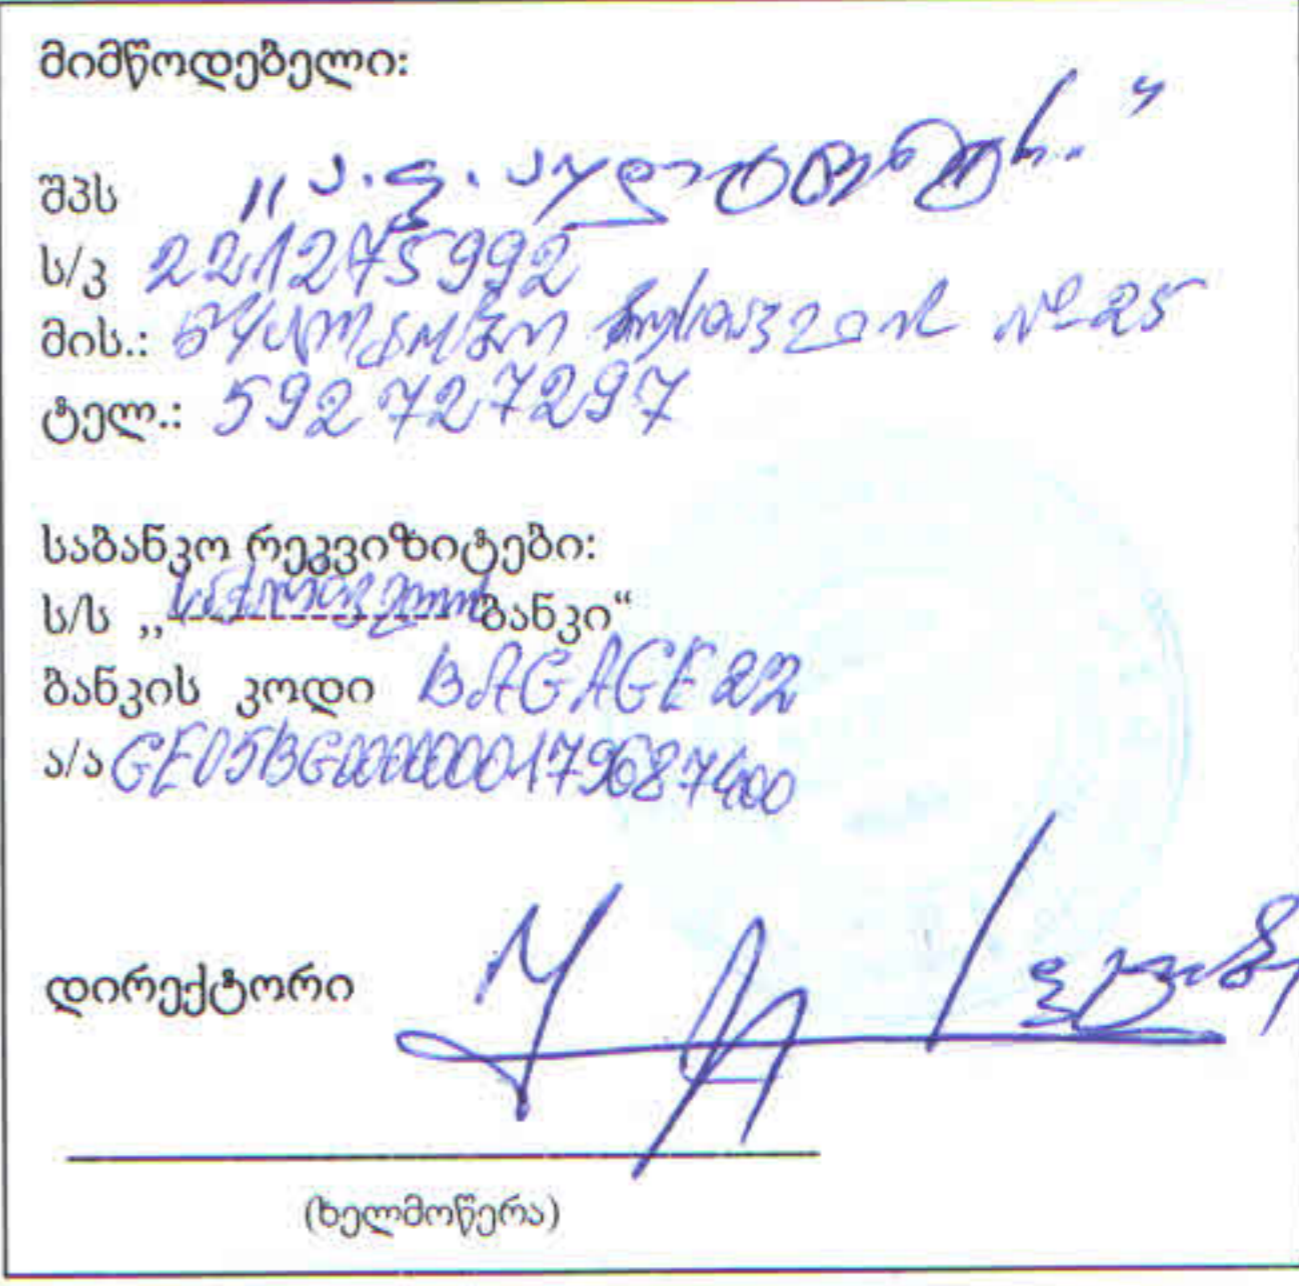 მიმწოდებელი:
შპს
ს/კ 221275992
მის.: წყალტუბო რუსთაველის №25
ტელ.: 592 727297
საბანკო რეკვიზიტები:
ს/ს „საქართველოს ბანკი“
ბანკის კოდი BAGAGE22
ა/ა GE05BG0000000179687400
დირექტორი
(ხელმოწერა)